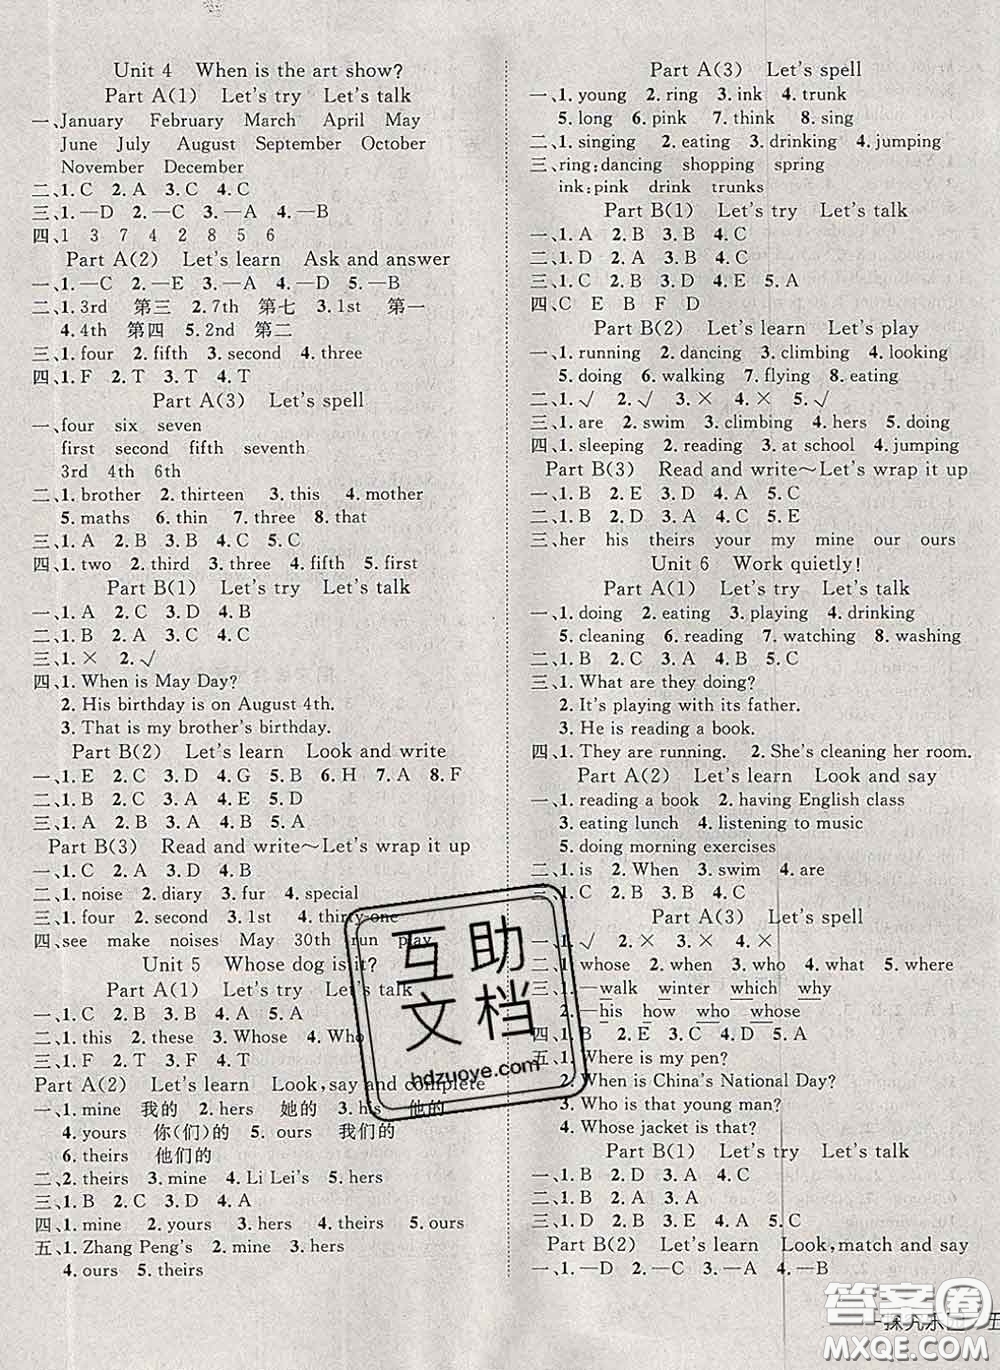 Unit 4 When is the art show?
Part A(1) Let's try Let's talk
一、January February March April May
June July August September October
November December
二、1. C 2. A 3. C 4. C
三、1. —D 2. —C 3. —A 4. —B
四、1 3 7 4 2 8 5 6
Part A(2) Let's learn Ask and answer
一、1. —C 2. —E 3. —A 4. —D 5. —B
二、1. 3rd 第三 2. 7th 第七 3. 1st 第一
4. 4th 第四 5. 2nd 第二
三、1. four 2. fifth 3. second 4. three
四、1. F 2. T 3. T 4. T
Part A(3) Let's spell
一、four six seven
first second fifth seventh
3rd 4th 6th
二、1. brother 2. thirteen 3. this 4. mother
5. maths 6. thin 7. three 8. that
三、1. A 2. B 3. A 4. B 5. C
四、1. two 2. third 3. three 4. fifth 5. first
Part B(1) Let's try Let's talk
一、1. A 2. C 3. D 4. E 5. B
二、1. B 2. A 3. C 4. A
三、1. × 2. √
四、1. When is May Day?
2. His birthday is on August 4th.
3. That is my brother's birthday.
Part B(2) Let's learn Look and write
一、1. E 2. C 3. D 4. G 5. B 6. H 7. A 8. F
二、1. B 2. C 3. A 4. E 5. D
三、1. A 2. A 3. B 4. B 5. A
Part B(3) Read and write~Let's wrap it up
一、1. C 2. A 3. D 4. B
二、1. noise 2. diary 3. fur 4. special
三、1. four 2. second 3. 1st 4. thirty-one
四、see make noises May 30th run play
Unit 5 Whose dog is it?
Part A(1) Let's try Let's talk
一、1. C 2. D 3. B 4. A 5. A
二、1. this 2. these 3. Whose 4. Who
三、1. F 2. T 3. F 4. T
Part A(2) Let's learn Look,say and complete
一、1. mine 我的 2. hers 她的 3. his 他的
4. yours 你(们)的 5. ours 我们的
6. theirs 他们的
二、2. theirs 3. mine 4. Li Lei's 5. hers
三、1. B 2. C 3. D 4. A
四、1. mine 2. yours 3. hers 4. theirs 5. ours
五、1. Zhang Peng's 2. mine 3. hers
4. ours 5. theirs
Part A(3) Let's spell
一、1. young 2. ring 3. ink 4. trunk
5. long 6. pink 7. think 8. sing
二、1. singing 2. eating 3. drinking 4. jumping
三、ring:dancing shopping spring
ink:pink drink trunks
Part B(1) Let's try Let's talk
一、1. A 2. B 3. B 4. C
二、1. D 2. A 3. B 4. C
三、1. C 2. B 3. D 4. E 5. A
四、C E B F D
Part B(2) Let's learn Let's play
一、1. running 2. dancing 3. climbing 4. looking
5. doing 6. walking 7. flying 8. eating
二、1. √ 2. √ 3. × 4. × 5. √
三、1. are 2. swim 3. climbing 4. hers 5. doing
四、1. sleeping 2. reading 3. at school 4. jumping
Part B(3) Read and write~Let's wrap it up
一、1. B 2. E 3. D 4. A 5. C
二、1. B 2. D 3. A 4. C 5. E
三、her his theirs your my mine our ours
Unit 6 Work quietly!
Part A(1) Let's try Let's talk
一、1. doing 2. eating 3. playing 4. drinking
5. cleaning 6. reading 7. watching 8. washing
二、1. B 2. B 3. A 4. C
三、1. What are they doing?
2. It's playing with its father.
3. He is reading a book.
四、1. They are running. 2. She's cleaning her room.
Part A(2) Let's learn Look and say
一、1. reading a book 2. having English class
3. eating lunch 4. listening to music
5. doing morning exercises
二、1. is 2. When 3. swim 4. are
三、1. C 2. B 3. C 4. B 5. B
Part A(3) Let's spell
一、1. √ 2. × 3. × 4. ×
二、1. whose 2. when 3. who 4. what 5. where
三、1. —walk winter which why
2. —his how who whose
四、1. B 2. E 3. C 4. D 5. A
五、1. Where is my pen?
2. When is China's National Day?
3. Who is that young man?
4. Whose jacket is that?
Part B(1) Let's try Let's talk
一、1. B 2. D 3. A 4. C
二、1. B 2. A 3. A
三、1. D 2. E 3. B 4. A 5. C
Part B(2) Let's learn Look,match and say
一、1. —D 2. —C 3. —A 4. —B
互助
文档
hdzuoye.com
答案圈
MXQE.COM